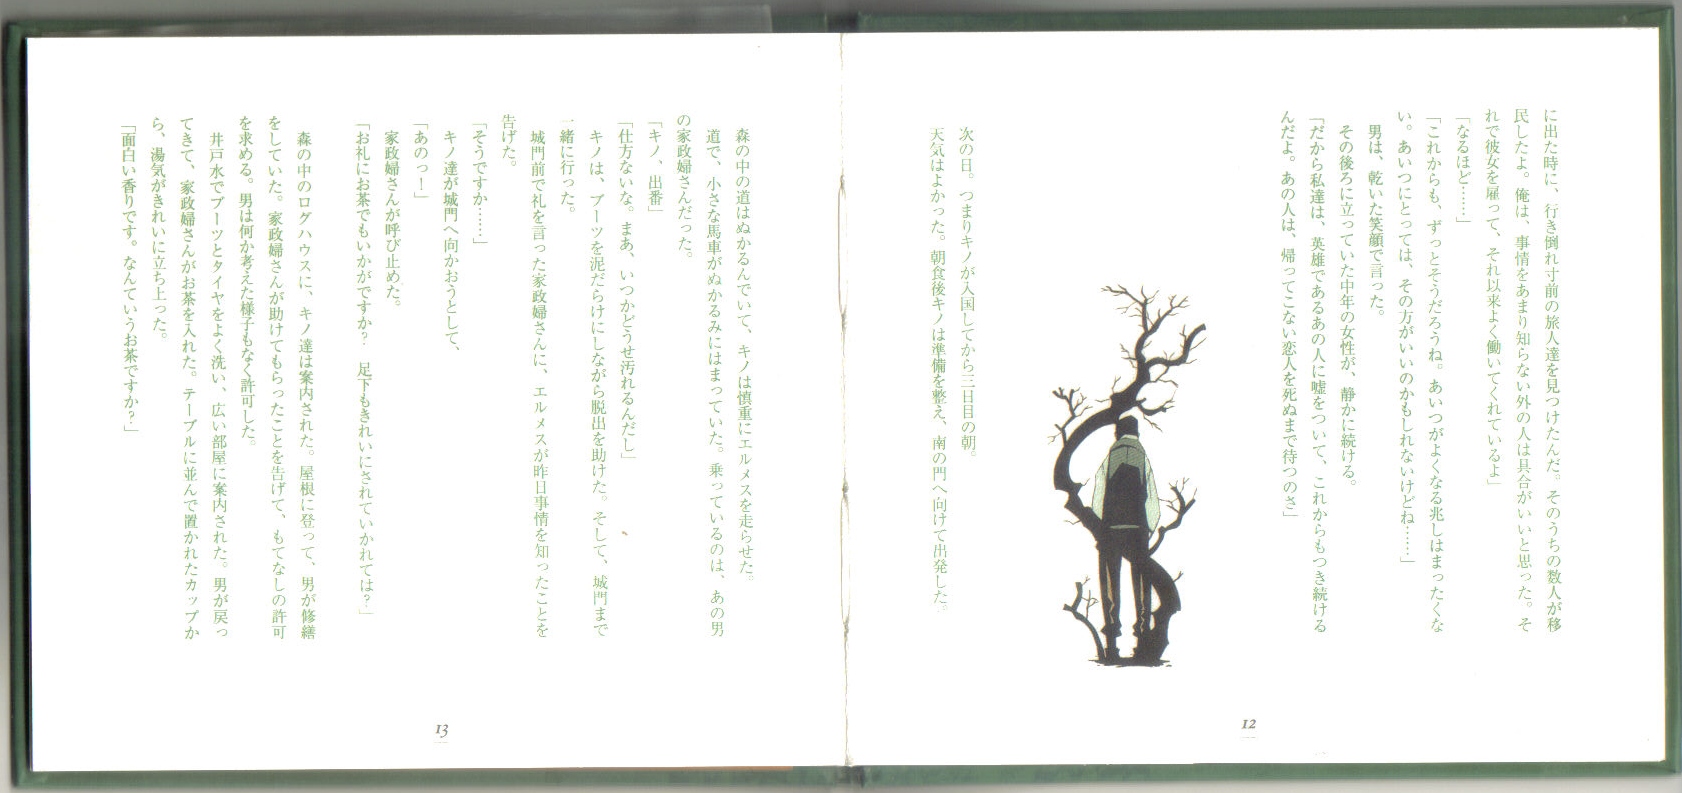 に出た時に、行き倒れ寸前の旅人達を見つけたんだ。そのうちの数人が移
民したよ。俺は、事情をあまり知らない外の人は具合がいいと思った。そ
れで彼女を雇って、それ以来よく働いてくれているよ」
「なるほど……」
「これからも、ずっとそうだろうね。あいつがよくなる兆しはまったくな
い。あいつにとっては、その方がいいのかもしれないけどね……」
男は、乾いた笑顔で言った。
その後ろに立っていた中年の女性が、静かに続ける。
「だから私達は、英雄であるあの人に嘘をついて、これからもつき続ける
んだよ。あの人は、帰ってこない恋人を死ぬまで待つのさ」
次の日。つまりキノが入国してから三日目の朝。
天気はよかった。朝食後キノは準備を整え、南の門へ向けて出発した。
12
森の中の道はぬかるんでいて、キノは慎重にエルメスを走らせた。
道で、小さな馬車がぬかるみにはまっていた。乗っているのは、あの男
の家政婦さんだった。
「キノ、出番」
「仕方ないな。まあ、いつかどうせ汚れるんだし」
キノは、ブーツを泥だらけにしながら脱出を助けた。そして、城門まで
一緒に行った。
城門前で礼を言った家政婦さんに、エルメスが昨日事情を知ったことを
告げた。
「そうですか……」
キノ達が城門へ向かおうとして、
「あのっ！」
家政婦さんが呼び止めた。
「お礼にお茶でもいかがですか？　足下もきれいにされていかれては？」
森の中のログハウスに、キノ達は案内された。屋根に登って、男が修繕
をしていた。家政婦さんが助けてもらったことを告げて、もてなしの許可
を求める。男は何か考えた様子もなく許可した。
井戸水でブーツとタイヤをよく洗い、広い部屋に案内された。男が戻っ
てきて、家政婦さんがお茶を入れた。テーブルに並んで置かれたカップか
ら、湯気がきれいに立ち上った。
「面白い香りです。なんていうお茶ですか？」
13